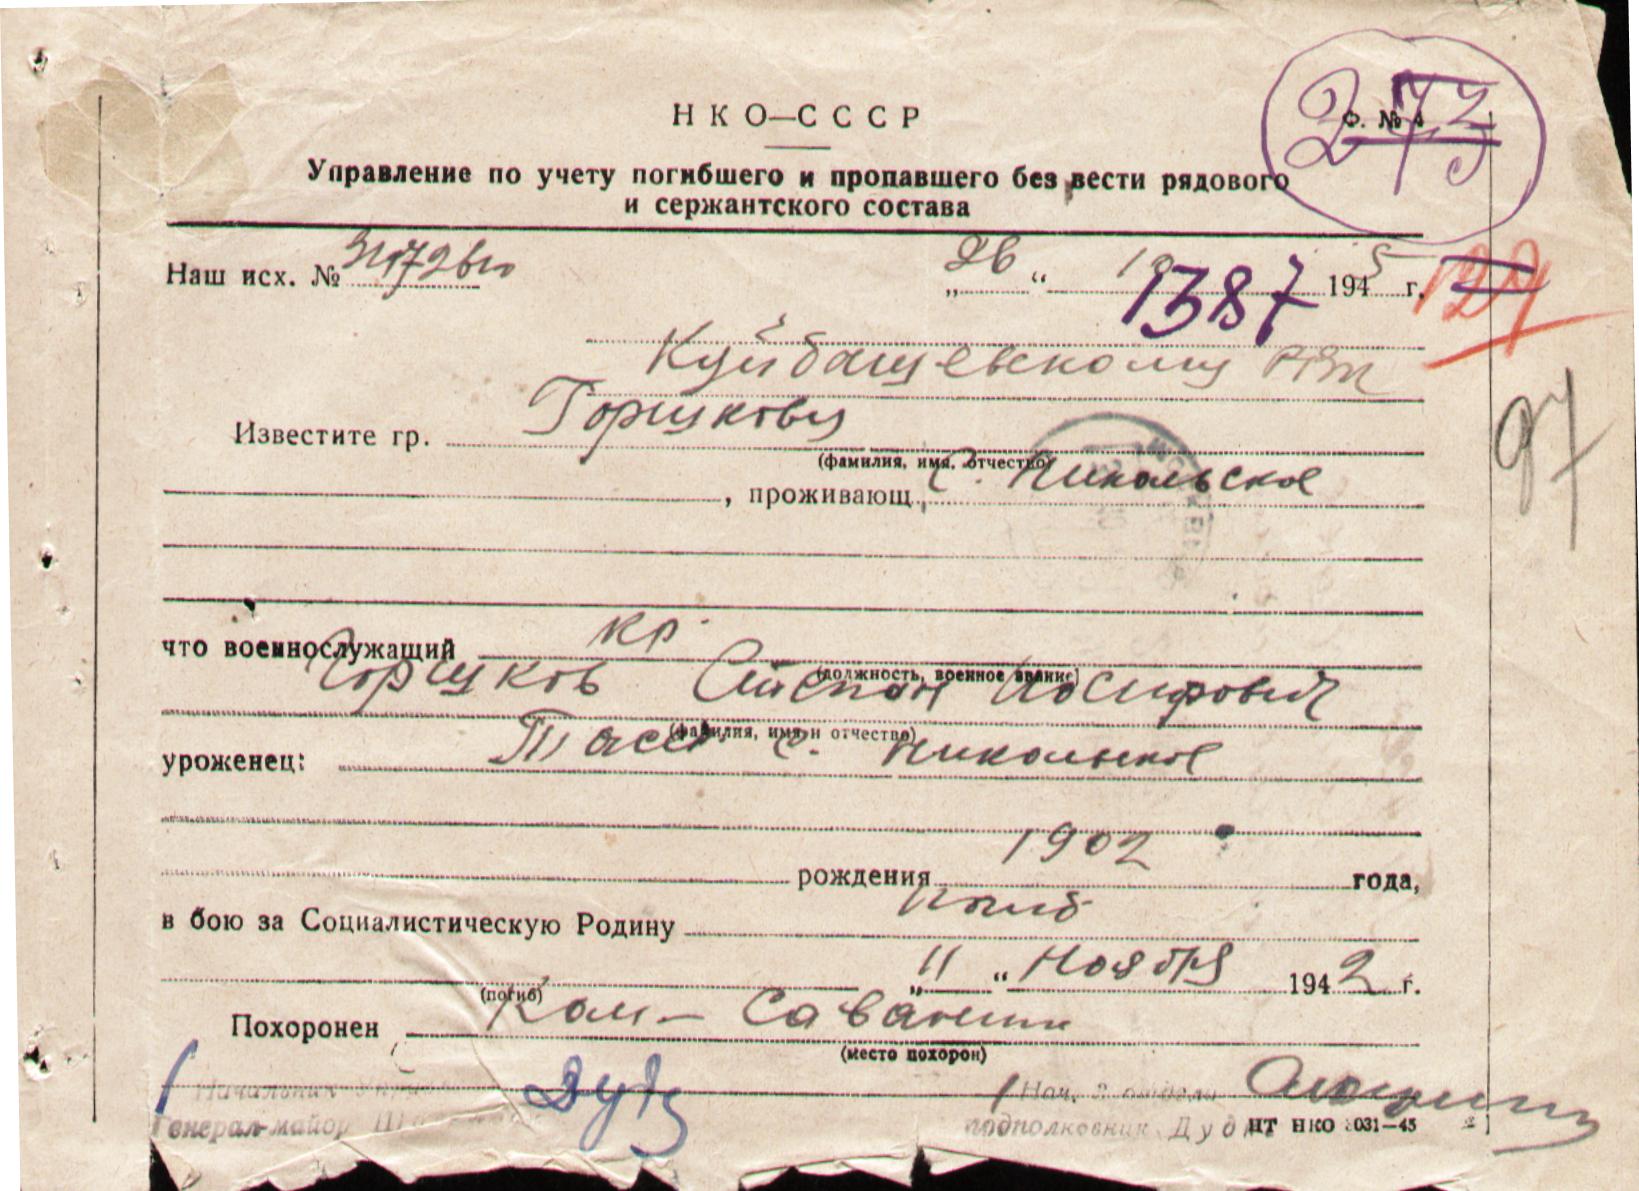 273
НКО—СССР
Ф. № 4
Управление по учету погибшего и пропавшего без вести рядового
и сержантского состава
Наш исх. №
„26“ 10 1945 г.
1387
129
Куйбашевскому РВК
97
Известите гр. Горшкову
(фамилия, имя, отчество)
, проживающ. с. Никольское
что военнослужащий кр.
(должность, военное звание)
Горшков Степан Иосифович
(фамилия, имя и отчество)
уроженец: ТАССР с. Никольское
рождения 1902 года,
в бою за Социалистическую Родину погиб
„11“ Ноября 1942 г.
(погиб)
Похоронен
(место похорон)
Начальник
Нач. 2 отдела
Генерал-майор
подполковник
ИТ НКО 3031—45